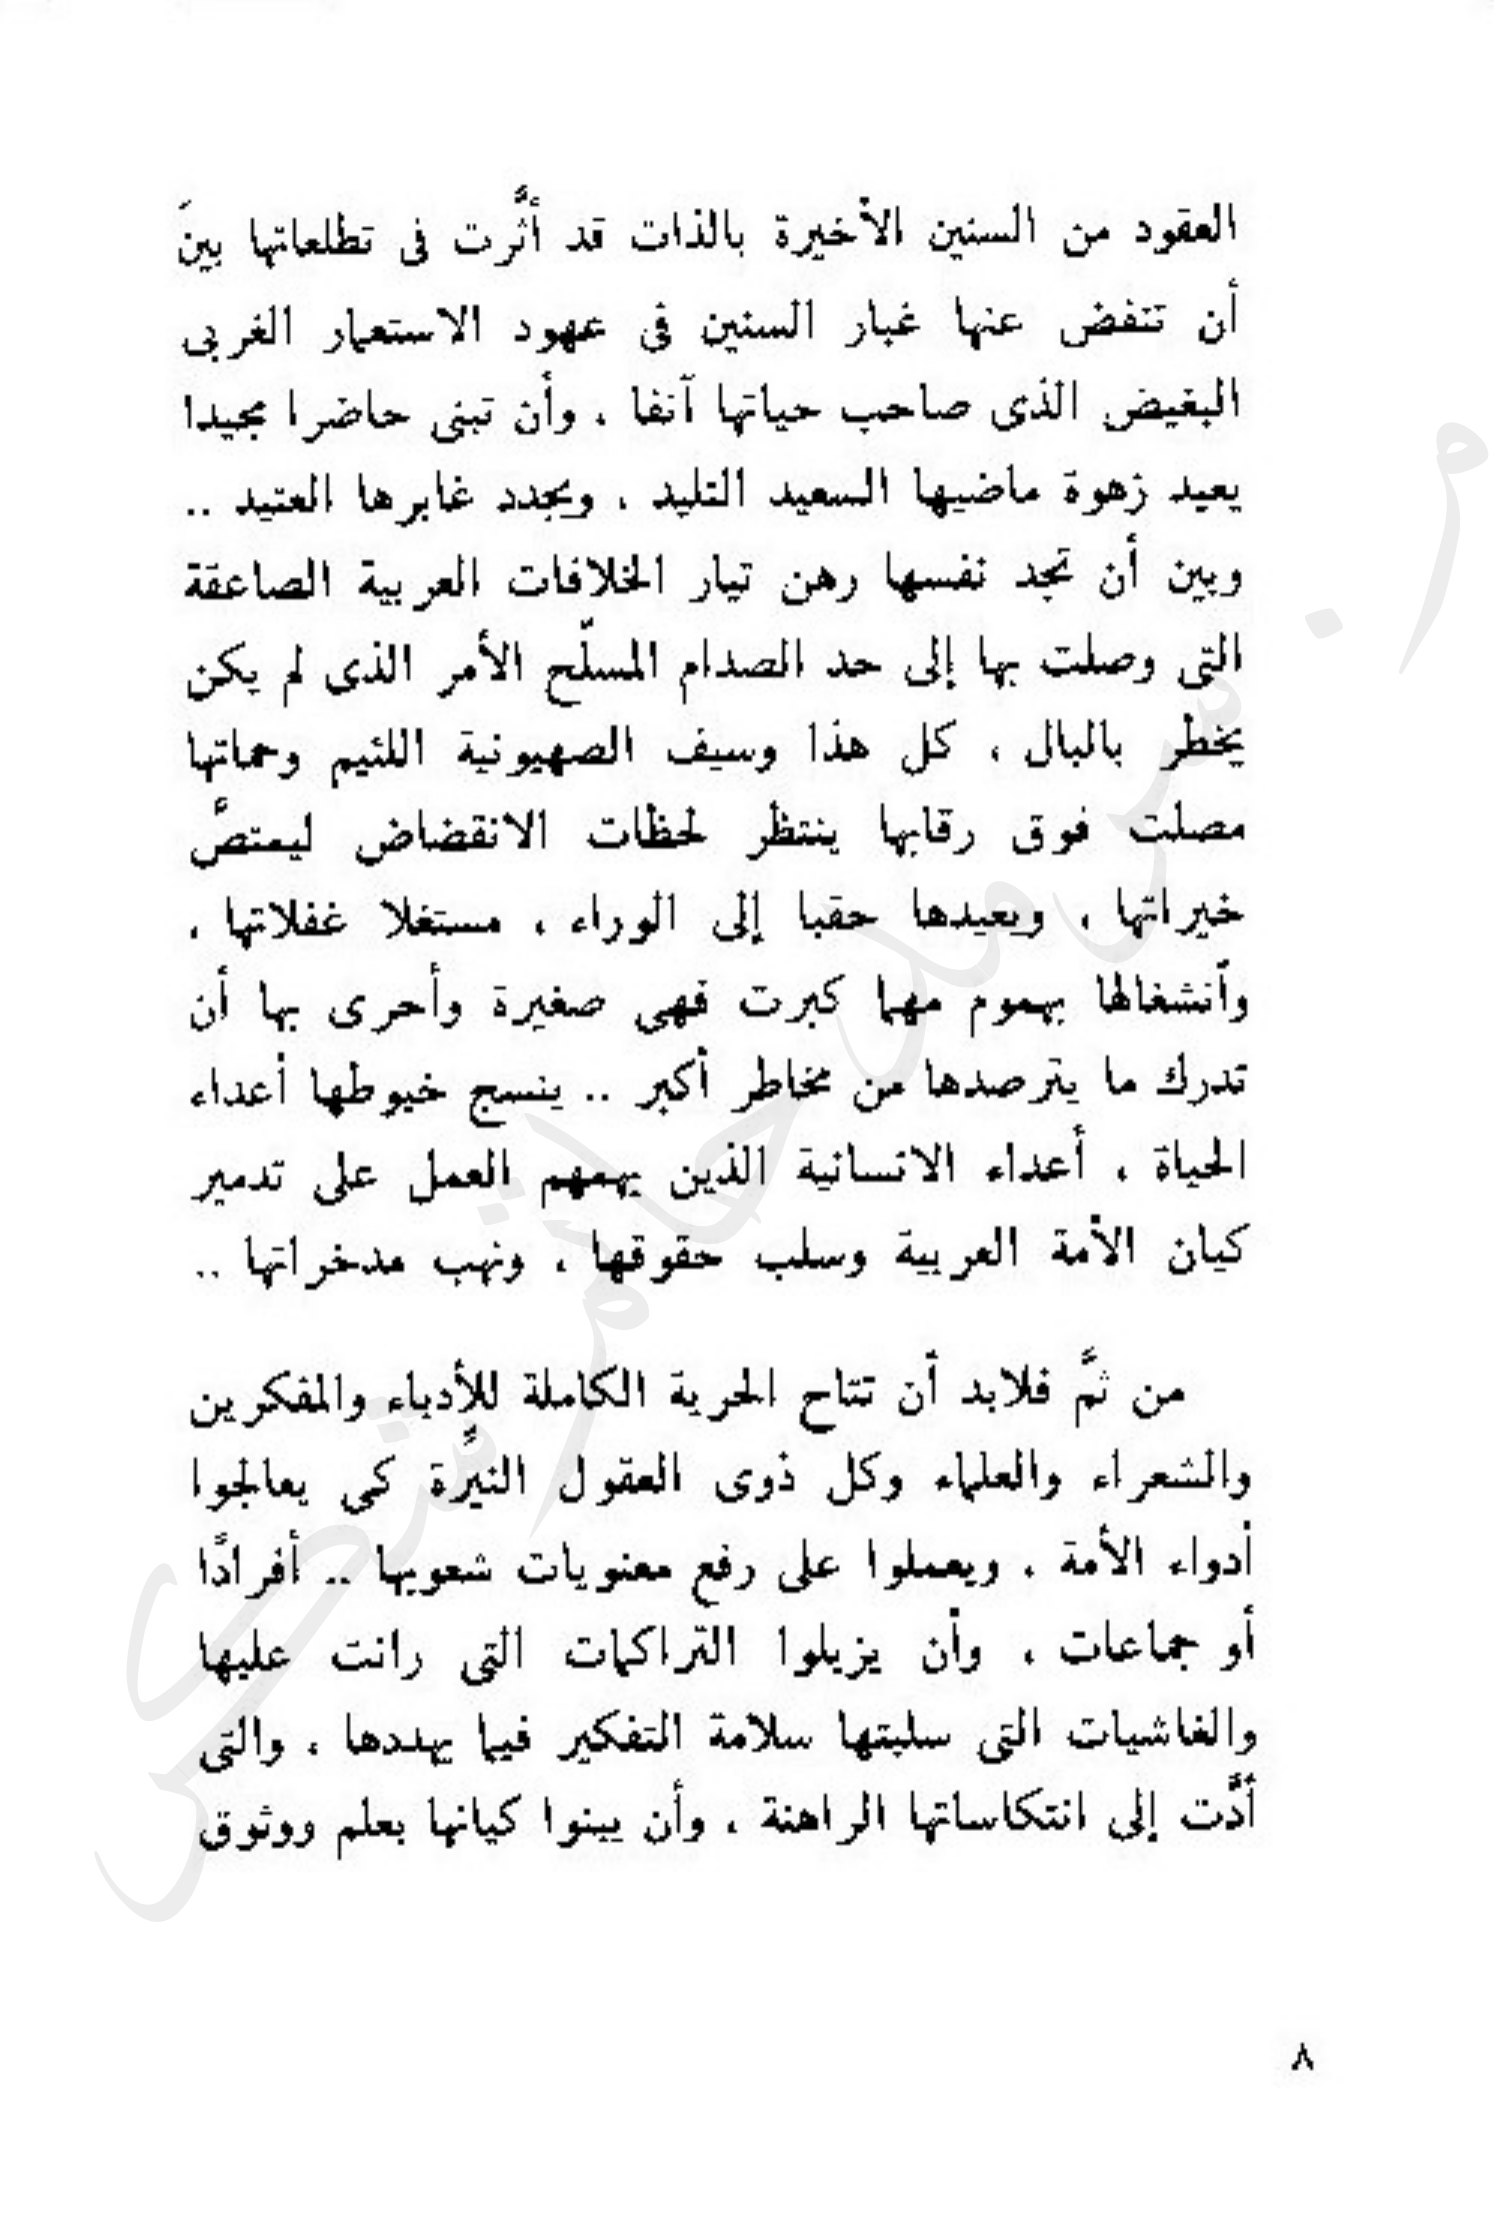 العقود من السنين الأخيرة بالذات قد أثَّرت فى تطلعاتها بينَ
أن تنفض عنها غبار السنين فى عهود الاستعمار الغربى
البغيض الذى صاحب حياتها آنفا ، وأن تبنى حاضرا مجيدا
يعيد زهوة ماضيها السعيد التليد ، ويجدد غابرها العتيد ..
وبين أن تجد نفسها رهن تيار الخلافات العربية الصاعقة
التى وصلت بها إلى حد الصدام المسلّح الأمر الذى لم يكن
يخطر بالبال ، كل هذا وسيف الصهيونية اللئيم وحماتها
مصلت فوق رقابها ينتظر لحظات الانقضاض ليمتصَّ
خيراتها ، ويعيدها حقبا إلى الوراء ، مستغلا غفلاتها ،
وآنشغالها بهموم مهما كبرت فهى صغيرة وأحرى بها أن
تدرك ما يترصدها من مخاطر أكبر .. ينسج خيوطها أعداء
الحياة ، أعداء الانسانية الذين يهمهم العمل على تدمير
كيان الأمة العربية وسلب حقوقها ، ونهب مدخراتها ..
من ثمَّ فلابد أن تتاح الحرية الكاملة للأدباء والمفكرين
والشعراء والعلماء وكل ذوى العقول النيِّرة كى يعالجوا
أدواء الأمة ، ويعملوا على رفع معنويات شعوبها .. أفرادًا
أو جماعات ، وأن يزيلوا التراكمات التى رانت عليها
والغاشيات التى سلبتها سلامة التفكير فيما يهددها ، والتى
أدَّت إلى انتكاساتها الراهنة ، وأن يبنوا كيانها بعلم ووثوق
٨